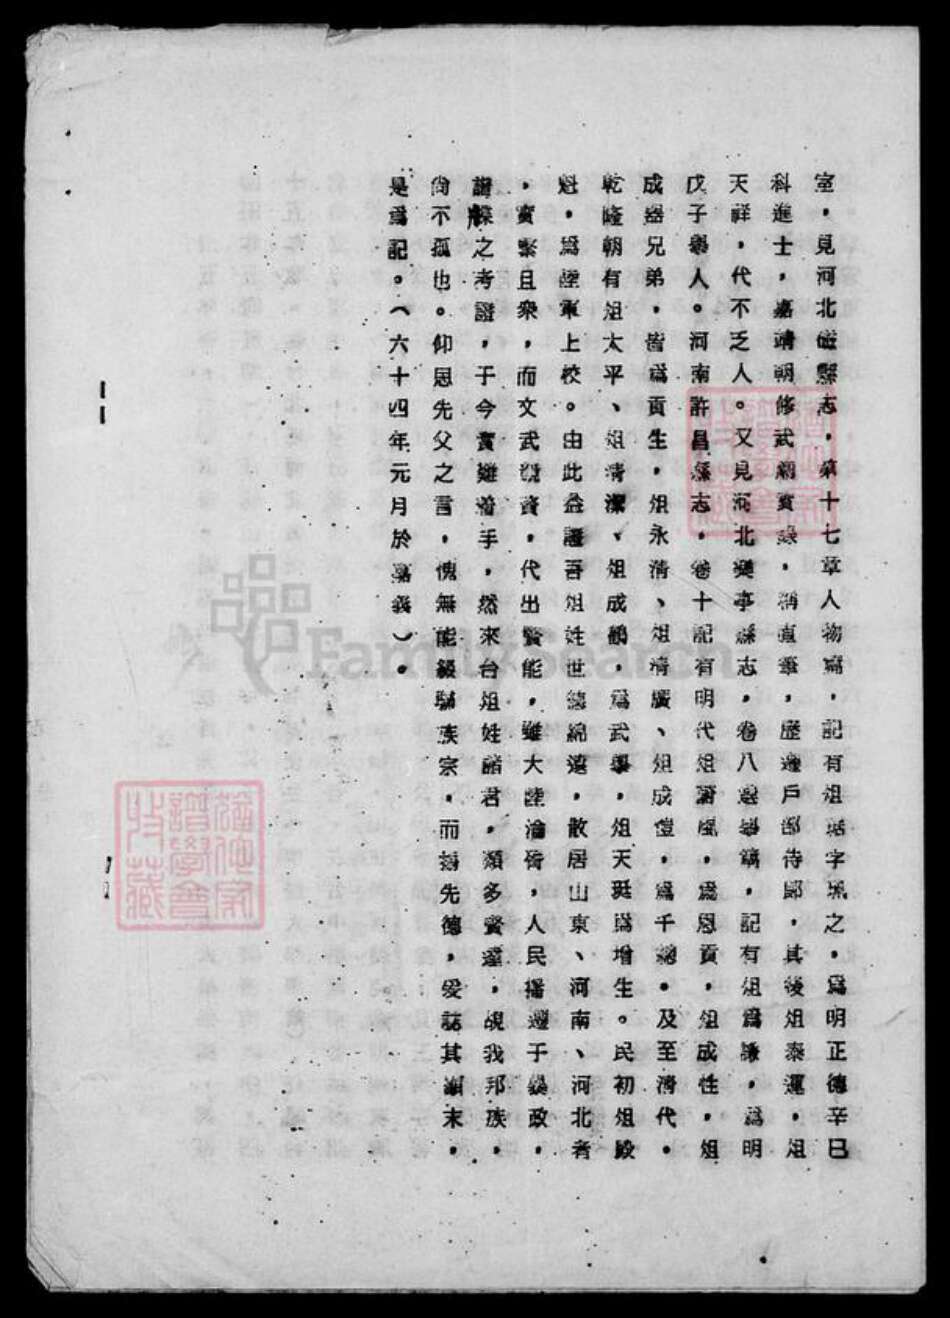 室，見河北磁縣志，第十七章人物篇，記有俎琚字珮之，爲明正德辛巳
科進士，嘉靖朝修武廟實錄，稱直筆，歷遷戶部侍郎，其後俎泰運，俎
天祥，代不乏人。又見河北 亭縣志，卷八選舉 ，記有俎爲謙，爲明
戊子舉人。河南許昌縣志，卷十記有明代俎 風，爲恩貢，俎成性，俎
成器兄弟，皆爲貢生，俎永清、俎清廣、俎成愷，爲千總。及至清代。
乾隆朝有俎太平、俎清潔、俎成鵬，爲武舉，俎天珽爲增生。民初俎殿
魁，爲陸軍上校。由此益證吾俎姓世德綿遠，散居山東、河南、河北者
，實繁且衆，而文武 資，代出賢能，雖大陸淪胥，人民播遷于暴政，
譜牒之考證，于今實難着手，然來台俎姓諸君，類多賢達，覘我邦族，
尙不孤也。仰思先父之言，愧無能綴 族宗，而揚先德，爰誌其顚末，
是爲記。（六十四年元月於嘉義）。
FamilySearch